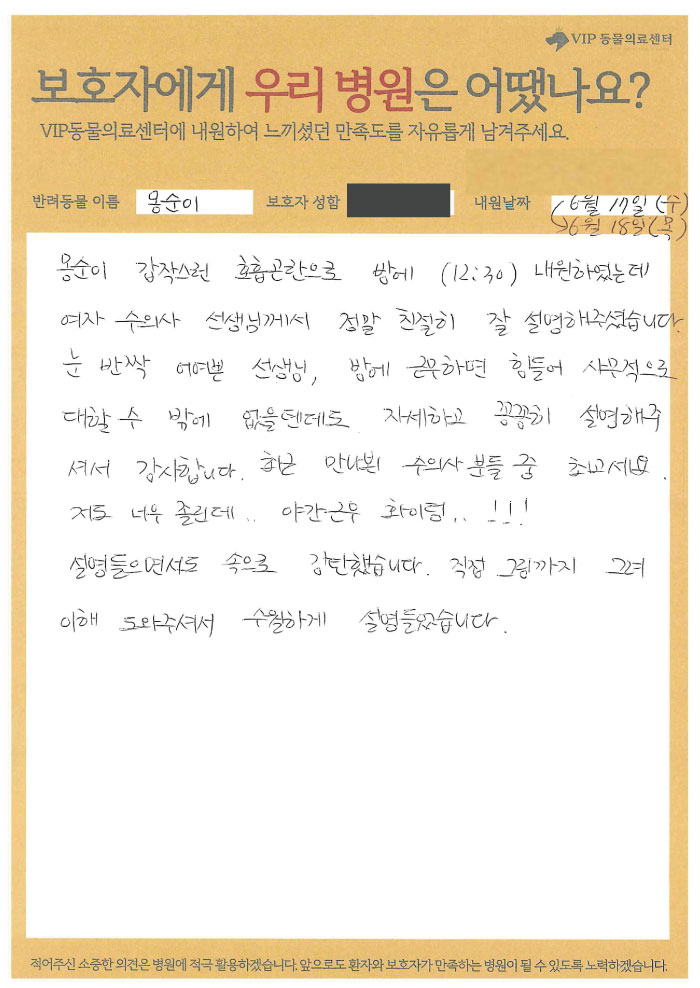 VIP 동물의료센터
보호자에게 우리 병원은 어땠나요?
VIP동물의료센터에 내원하여 느끼셨던 만족도를 자유롭게 남겨주세요.
반려동물 이름 몽순이 보호자 성함 내원날짜 6월 17일 (수)
6월 18일 (목)
몽순이 갑작스런 호흡곤란으로 밤에 (12:30) 내원하였는데
여자 수의사 선생님께서 정말 친절히 잘 설명해주셨습니다.
눈 반짝 어여쁜 선생님, 밤에 근무하면 힘들어 사무적으로
대할 수 밖에 없을텐데도 자세하고 꼼꼼히 설명해주
셔서 감사합니다. 최근 만나본 수의사 분들 중 최고세요.
저도 너무 졸린데.. 야간근무 화이텅... !!!
설명들으면서도 속으로 감탄했습니다. 직접 그림까지 그려
이해 도와주셔서 수월하게 설명들었습니다.
적어주신 소중한 의견은 병원에 적극 활용하겠습니다. 앞으로도 환자와 보호자가 만족하는 병원이 될 수 있도록 노력하겠습니다.